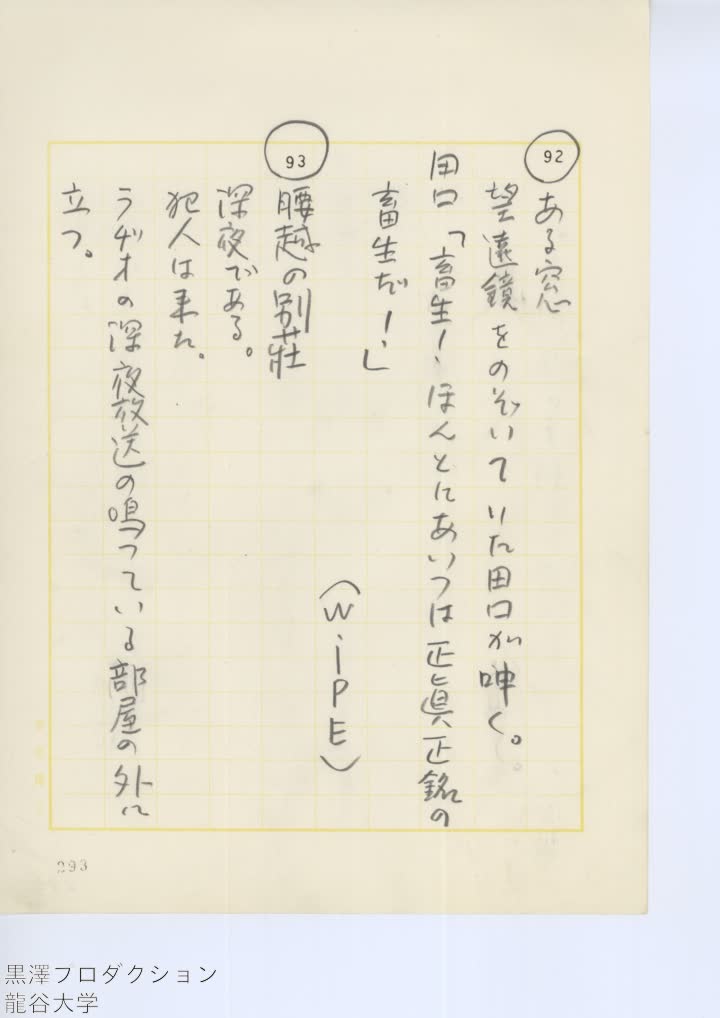 92
ある窓
望遠鏡をのぞいていた田口が呻く。
田口「畜生！ほんとにあいつは正真正銘の
畜生だ！」
(WiPE)
93
腰越の別荘
深夜である。
犯人は来た。
ラヂオの深夜放送の鳴つている部屋の外に
立つ。
293
黒澤プロダクション
龍谷大学